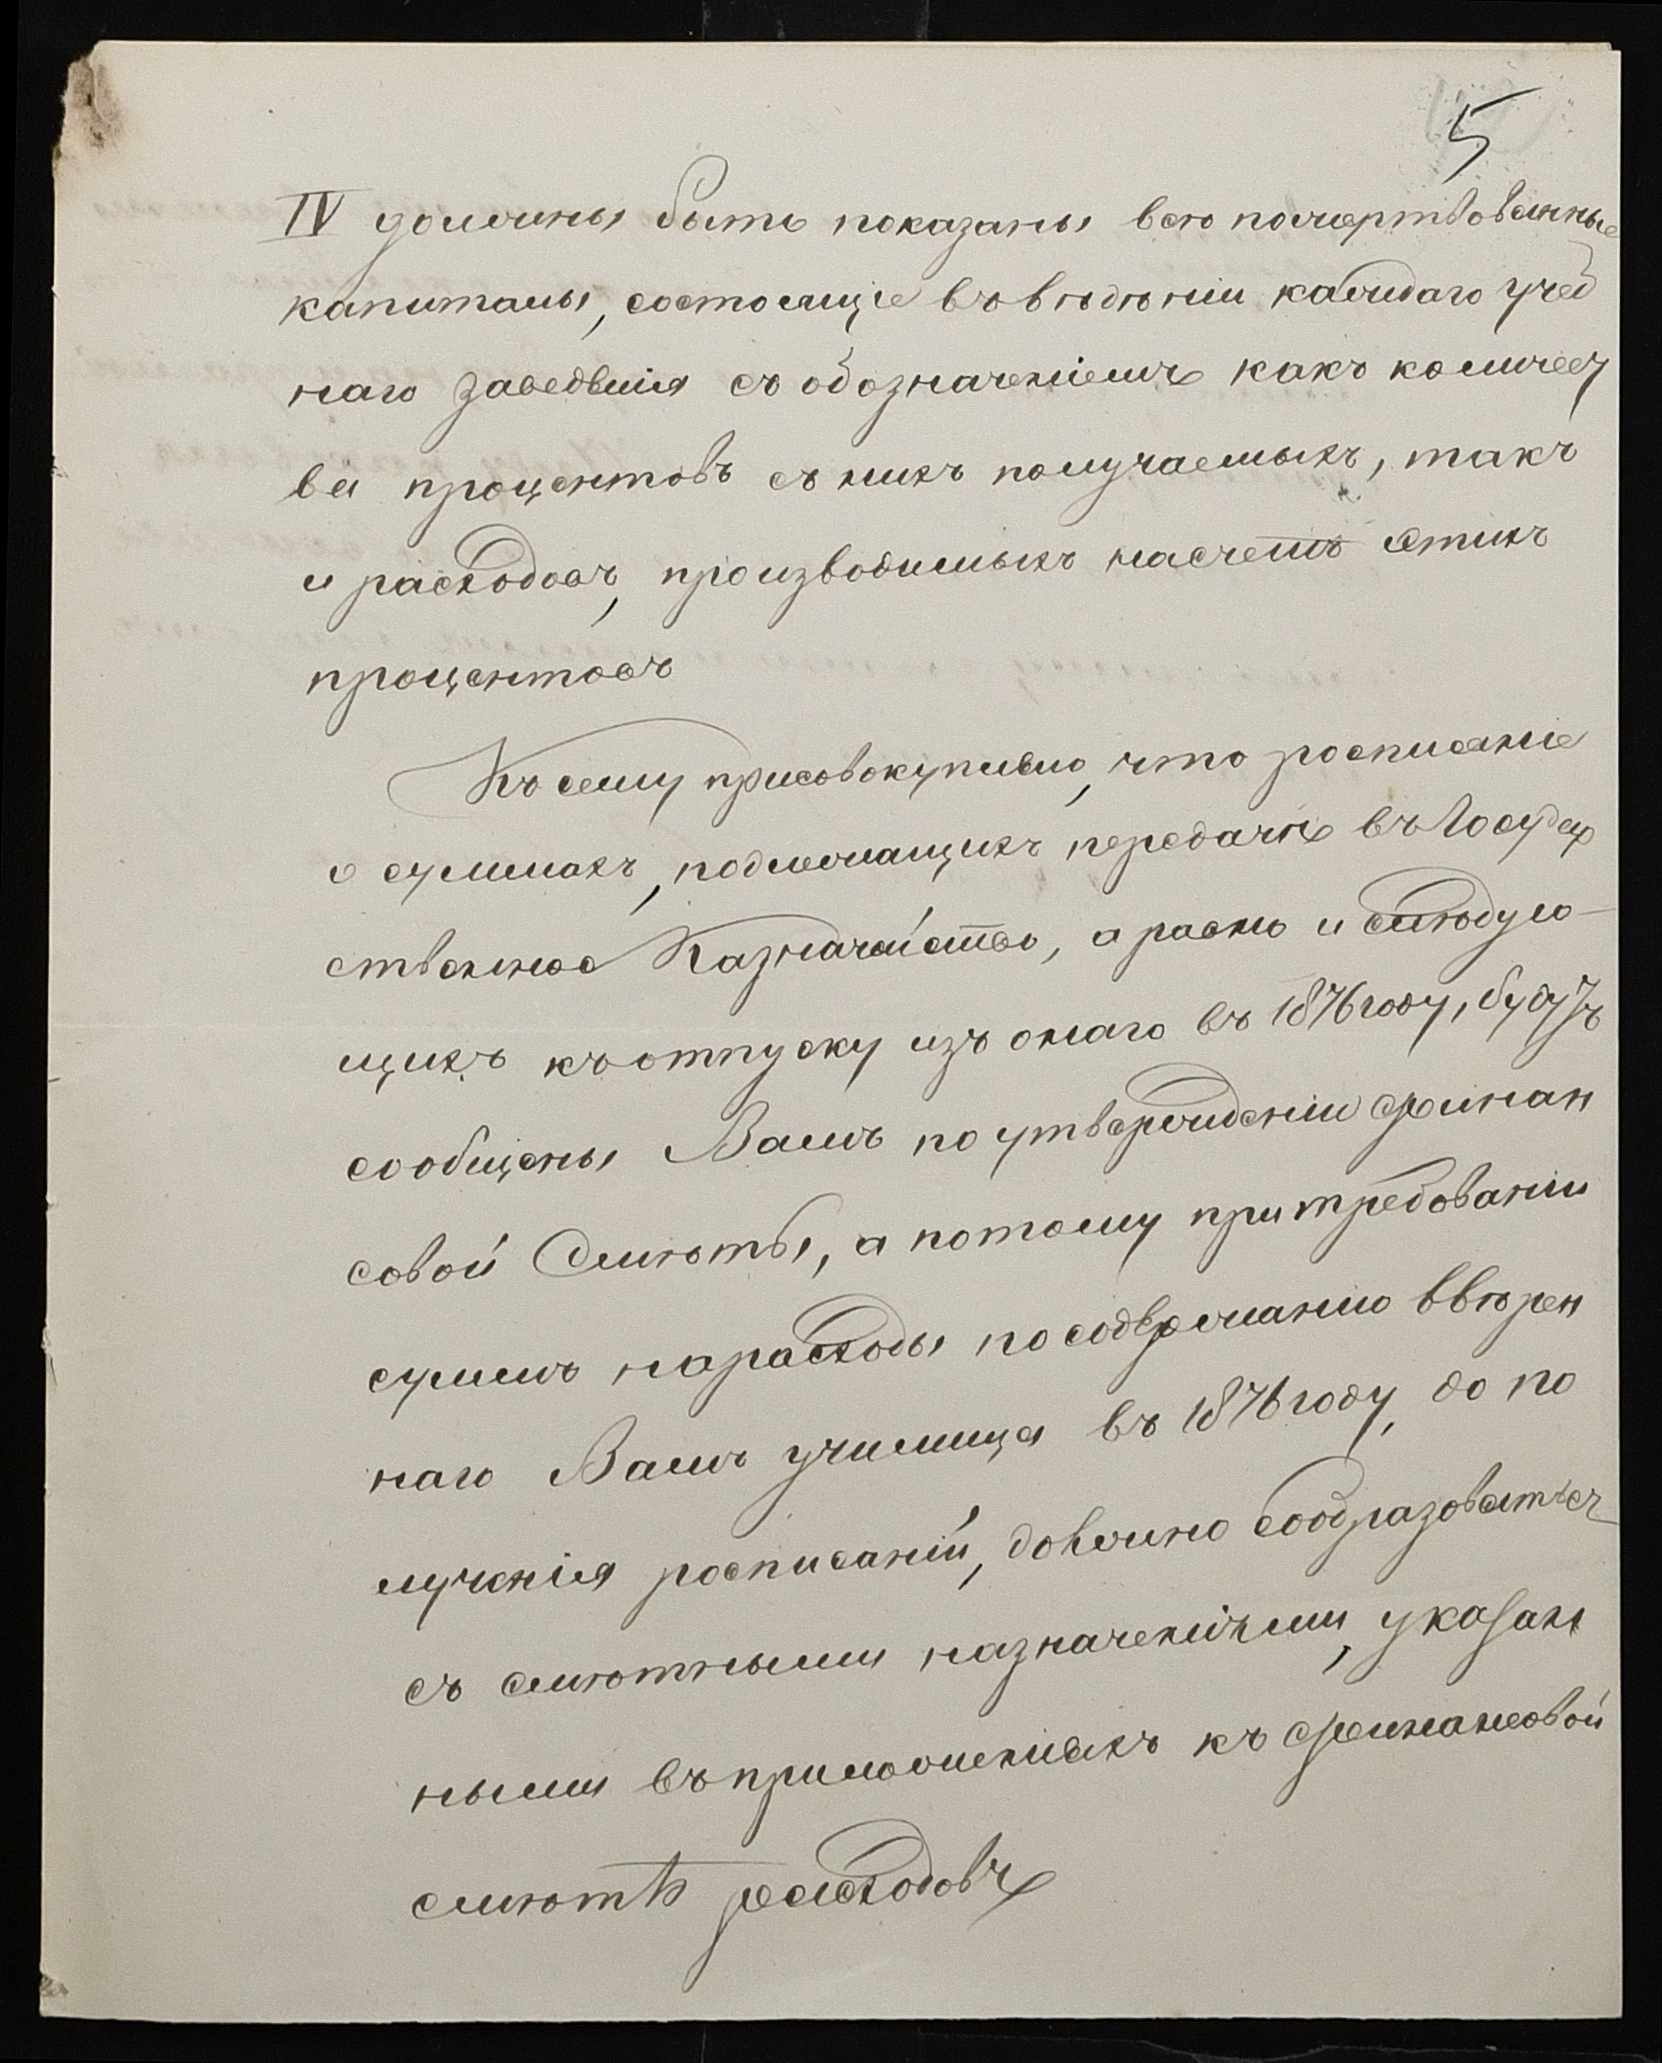 5
IV должны быть показаны всѣ пожертвованные
капиталы, состоящіе въ вѣдѣніи каждаго учеб
наго заведенія съ обозначеніемъ какъ количест
ва процентовъ съ нихъ получаемыхъ, такъ
и расходовъ, производимыхъ насчетъ этихъ
процентовъ
Къ сему присовокупляю, что росписаніе
о суммахъ, подлежащихъ передачѣ въ Государ
ственное Казначейство, а равно и слѣдую-
щихъ къ отпуску изъ онаго въ 1876 году, будутъ
сообщены Вамъ по утвержденіи финан
совой Смѣты, а потому при требованіи
суммъ на расходы по содержанію ввѣрен
наго Вамъ училища въ 1876 году, до по
лученія росписаній, должно сообразоваться
съ смѣтными назначеніями, указан
ными въ приложеніяхъ къ финансовой
смѣтѣ расходовъ